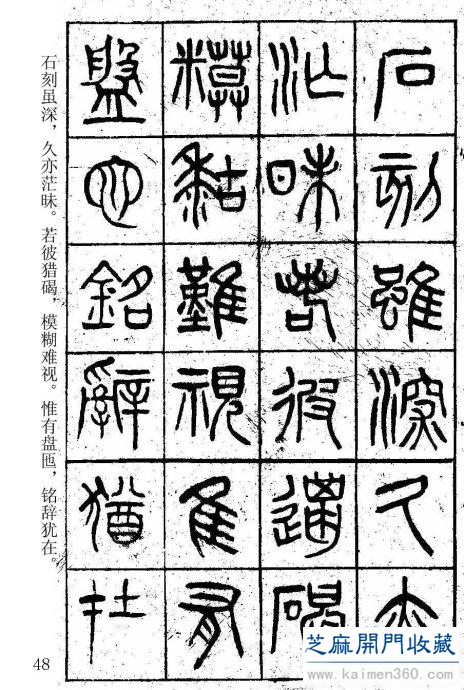 石刻雖深久亦
汒昧若彼邋碣
糢難視隹有
盤也銘辭猶在
石刻虽深，久亦茫昧。若彼猎碣，模糊难视。惟有盘匜，铭辞犹在。
48
芝麻開門收藏
www.kaimen360.com